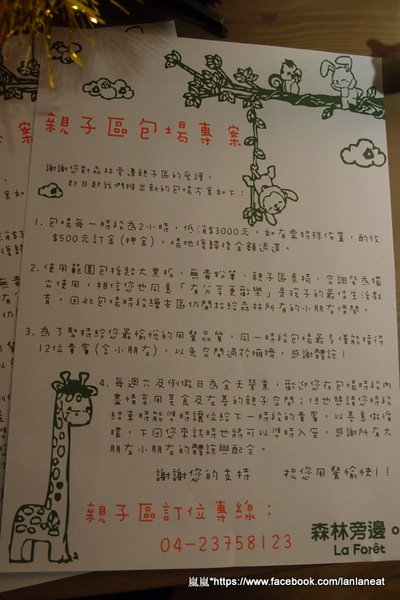 親子區包場專案
謝謝您對森林旁邊親子區的愛護,
即日起我們推出新的包場方案如下:
1. 包場每一時段為2小時,低消$3000元,如有需特殊佈置,酌收
$500元訂金(押金),場地復歸後全額退還。
2. 使用範圍包括超大黑板、無毒粉筆、親子區桌椅、空調皆為獨
立使用,相信您也同意「有分享更歡樂」是孩子的最佳生活教
育,因此包場時段繪本區仍開放給森林所有的小朋友借閱。
3. 為了堅持給您最愉悅的用餐品質,同一時段包場最多僅能接待
12位貴賓(含小朋友),以免空間過於擁擠,感謝體諒!
4. 每週六及例假日為全天營業,歡迎您在包場時段內
盡情享用美食及友善的親子空間;但也懇請您時段
結束時能準時讓位給下一時段的貴賓,以善意做循
環,下回您來訪時也將可以準時入座,感謝所有大
朋友小朋友的體諒與配合。
謝謝您的支持 祝您用餐愉快!!
親子區訂位專線:
04-23758123
森林旁邊。
La Forêt
嵐嵐*https://www.facebook.com/lanlaneat